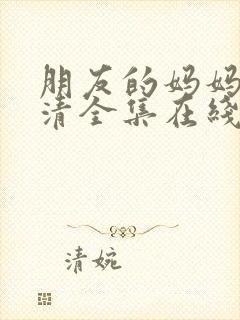 朋友的妈妈
清全集在线
清婉